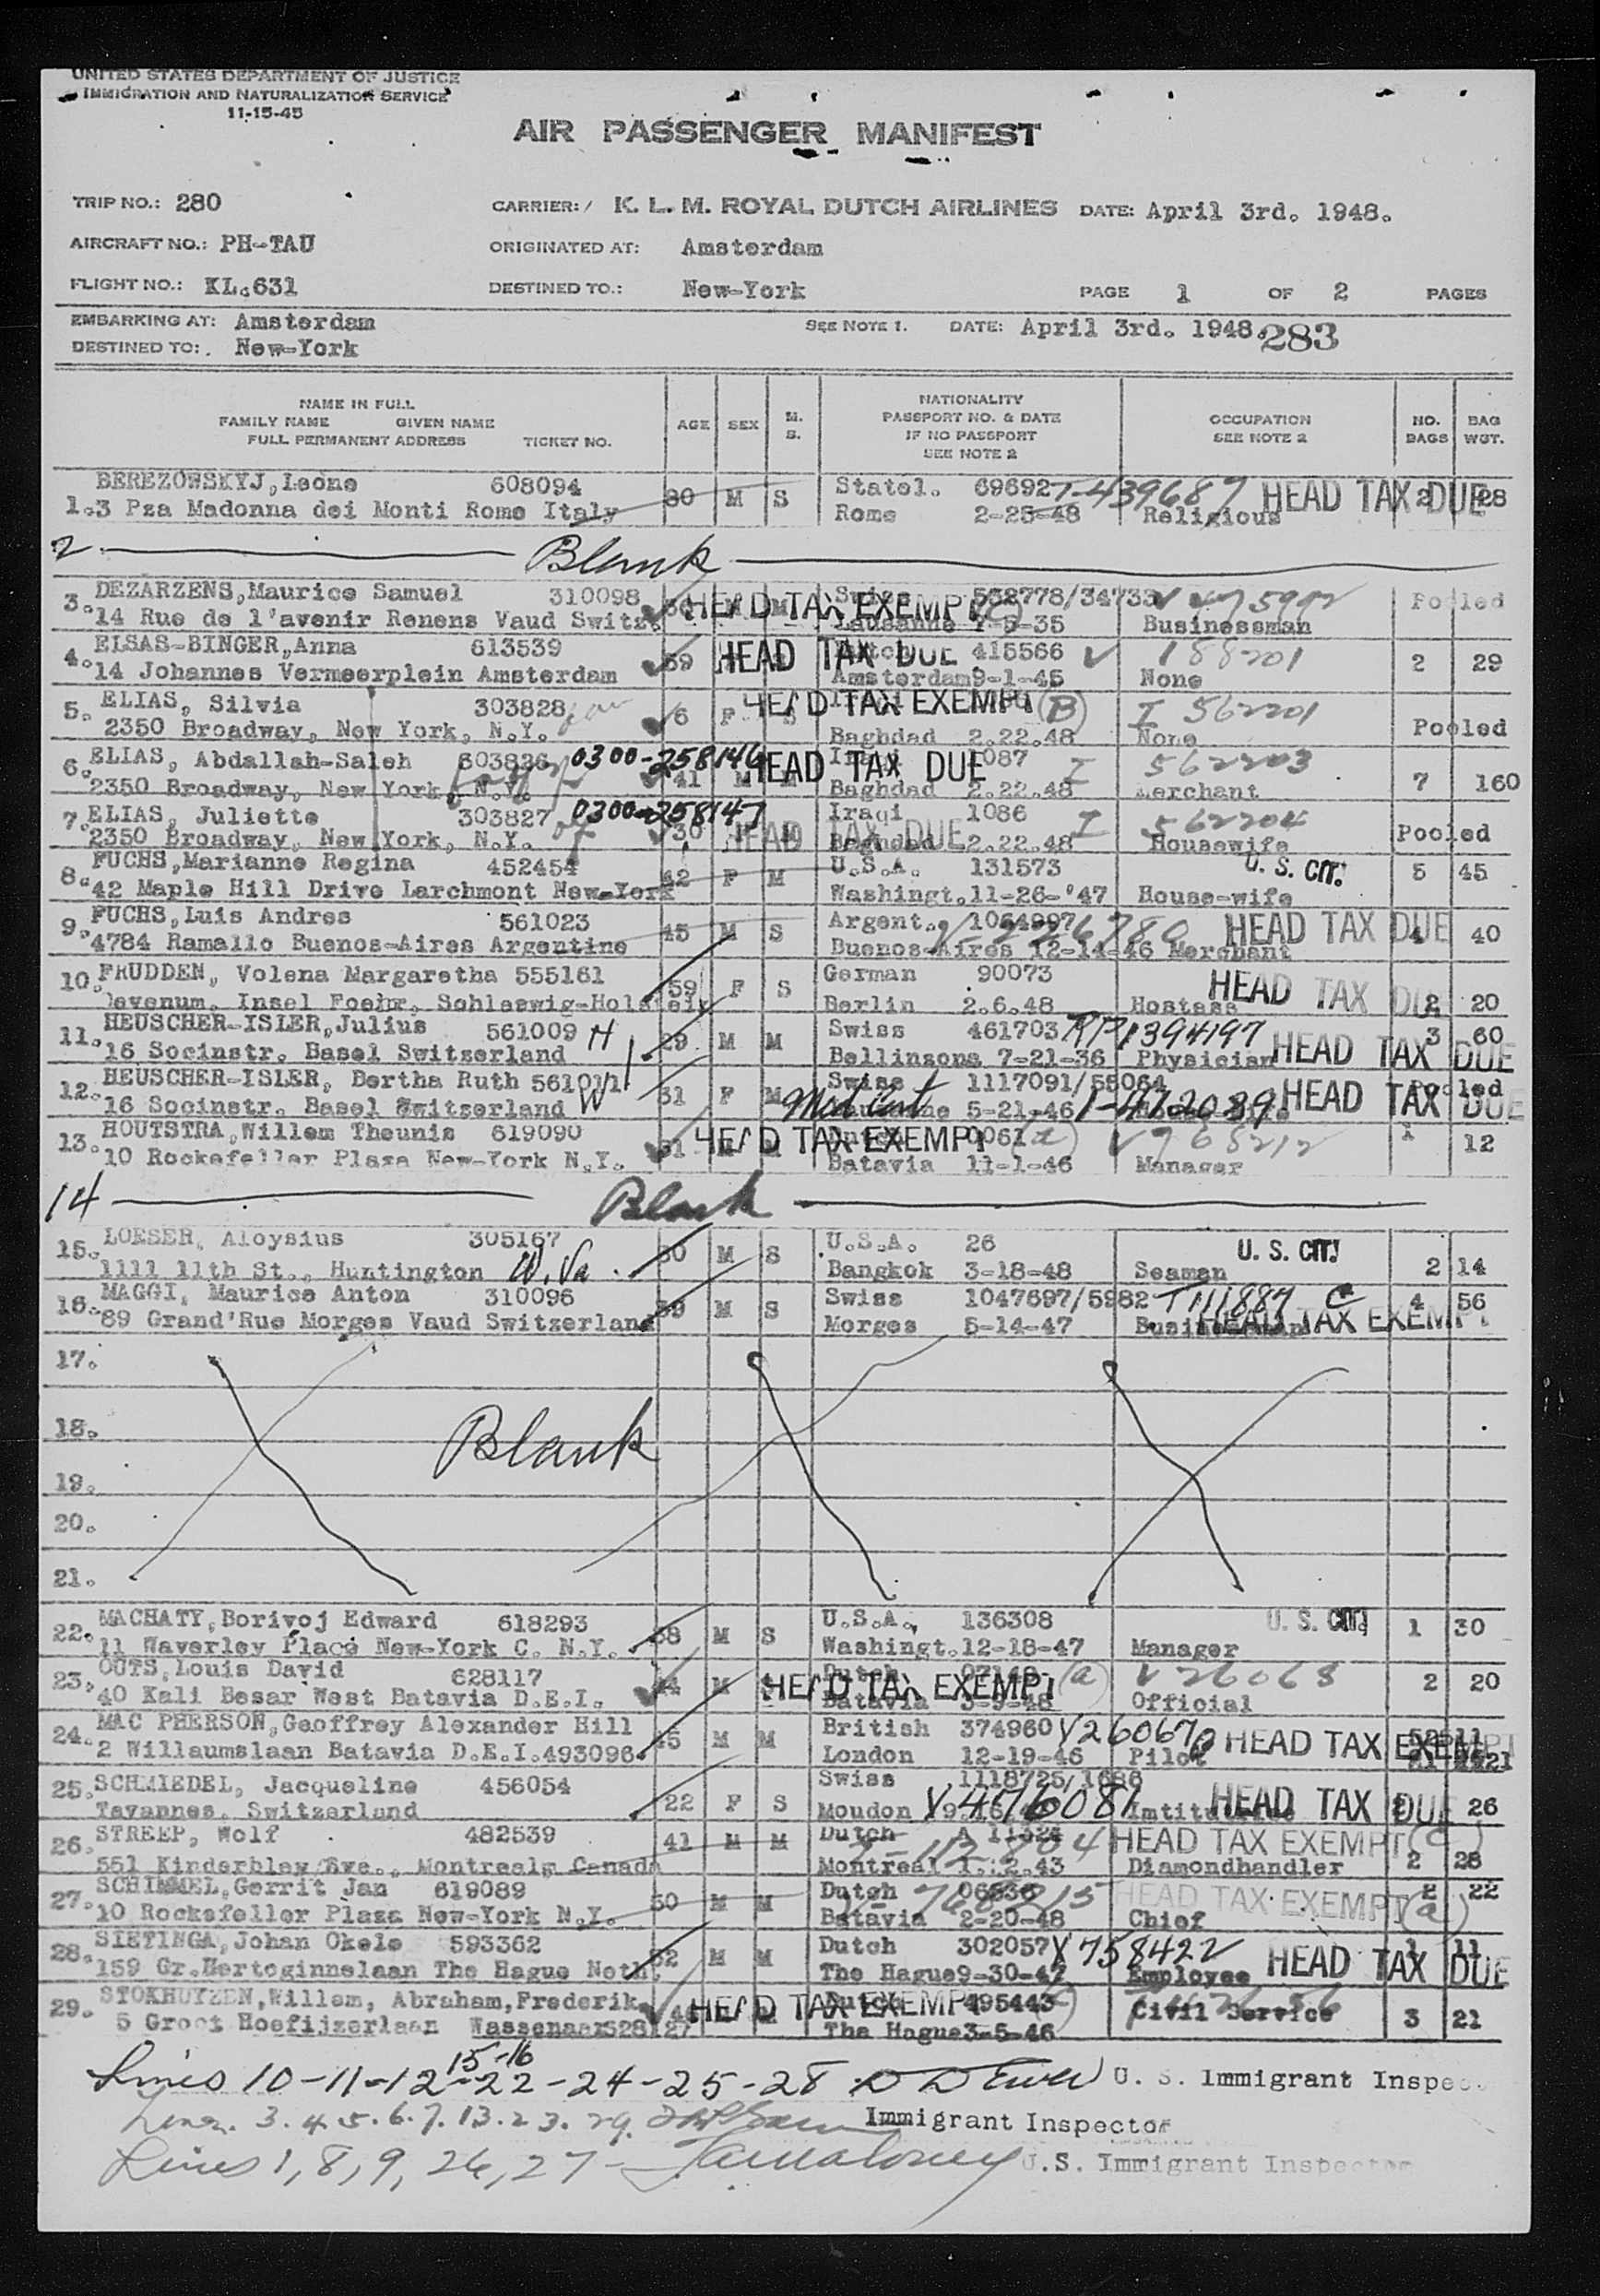 UNITED STATES DEPARTMENT OF JUSTICE
IMMIGRATION AND NATURALIZATION SERVICE
11-15-45
AIR PASSENGER MANIFEST
TRIP NO.: 280 CARRIER: K. L. M. ROYAL DUTCH AIRLINES DATE: April 3rd. 1948.
AIRCRAFT NO.: PH-TAU ORIGINATED AT: Amsterdam
FLIGHT NO.: KL.631 DESTINED TO.: New-York PAGE 1 OF 2 PAGES
EMBARKING AT: Amsterdam SEE NOTE 1. DATE: April 3rd. 1948. 283
DESTINED TO: New-York
NAME IN FULL
FAMILY NAME GIVEN NAME
FULL PERMANENT ADDRESS TICKET NO.
AGE SEX M. S.
NATIONALITY
PASSPORT NO. & DATE
IF NO PASSPORT
SEE NOTE 2
OCCUPATION
SEE NOTE 2
NO. BAGS
BAG WGT.
BEREZOWSKYJ, Leone 608094 30 M S Statel. 69692 T-439687 HEAD TAX DUE 2 28
1. 3 Pza Madonna dei Monti Rome Italy Rome 2-25-48 Religious
2 Blank
3. DEZARZENS, Maurice Samuel 310098 HEAD TAX EXEMPT Swiss 562778/34733 Pooled
14 Rue de l'avenir Renens Vaud Switz. Lausanne 7-5-35 Businessman
4. ELSAS-BINGER, Anna 613539 59 HEAD TAX DUE 415566 188201 2 29
14 Johannes Vermeerplein Amsterdam Amsterdam 9-1-45 None
5. ELIAS, Silvia 303828 6 F S HEAD TAX EXEMPT (B) I 562201 Pooled
2350 Broadway, New York, N.Y. Baghdad 2.22.48 None
6. ELIAS, Abdallah-Saleh 303826 0300-258146 41 M M HEAD TAX DUE Iraqi 1087 I 562203 7 160
2350 Broadway, New York, N.Y. Baghdad 2.22.48 Merchant
7. ELIAS, Juliette 303827 0300-258147 30 HEAD TAX DUE Iraqi 1086 I 562204 Pooled
2350 Broadway, New York, N.Y. Baghdad 2.22.48 Housewife
8. FUCHS, Marianne Regina 452454 42 F M U.S.A. 131573 U. S. CIT. 5 45
42 Maple Hill Drive Larchmont New-York Washingt. 11-26-'47 House-wife
9. FUCHS, Luis Andres 561023 45 M S Argent. 1064997 HEAD TAX DUE 4 40
4784 Ramallo Buenos-Aires Argentine Buenos-Aires 12-14-46 Merchant
10. FRUDDEN, Volena Margaretha 555161 59 F S German 90073 HEAD TAX DUE 2 20
levenum, Insel Foehr, Schleswig-Holstein Berlin 2.6.48 Hostess
11. HEUSCHER-ISLER, Julius 561009 H 29 M M Swiss 461703 RP1394197 HEAD TAX DUE 3 60
16 Socinstr. Basel Switzerland Bellinzona 7-21-36 Physician
12. HEUSCHER-ISLER, Bertha Ruth W 31 F M Swiss 1117091/55064 HEAD TAX DUE Pooled
16 Socinstr. Basel Switzerland Med Cert 5-21-46 1-472089
13. HOUTSTRA, Willem Theunis 619090 HEAD TAX EXEMPT (a) V 968212 1 12
10 Rockefeller Plaza New-York N.Y. Batavia 11-1-46 Manager
14 Blank
15. LOESER, Aloysius 305167 30 M S U.S.A. 26 U. S. CIT. 2 14
1111 11th St., Huntington W. Va. Bangkok 3-18-48 Seaman
16. MAGGI, Maurice Anton 310096 39 M S Swiss 1047697/5982 T111887 C 4 56
89 Grand'Rue Morges Vaud Switzerland Morges 5-14-47 Businessman HEAD TAX EXEMPT
17.
18. Blank
19.
20.
21.
22. MACHATY, Borivoj Edward 618293 38 M S U.S.A. 136308 U. S. CIT. 1 30
11 Waverley Place New-York C. N.Y. Washingt. 12-18-47 Manager
23. OUTS, Louis David 628117 M S HEAD TAX EXEMPT (a) V 26068 2 20
40 Kali Besar West Batavia D.E.I. Batavia 3-9-48 Official
24. MAC PHERSON, Geoffrey Alexander Hill 45 M M British 374960 V260670 HEAD TAX EXEMPT
2 Willaumslaan Batavia D.E.I. 493096 London 12-19-46 Pilot
25. SCHMIEDEL, Jacqueline 456054 22 F S Swiss 1118725/1686 HEAD TAX DUE 26
Tavannes. Switzerland Moudon V476081
26. STREEP, Wolf 482539 41 M M Dutch HEAD TAX EXEMPT (C) 2 28
551 Kinderbley Ave., Montreal, Canada Montreal Diamondhandler
27. SCHIMMEL, Gerrit Jan 619089 50 M M Dutch 06536 HEAD TAX EXEMPT (a) 2 22
10 Rockefeller Plaza New-York N.Y. Batavia 2-20-48 Chief
28. SIETINGA, Johan Okele 593362 52 M M Dutch 302057 V758422 HEAD TAX DUE 1 11
159 Gr.Hertoginnelaan The Hague Neth. The Hague 9-30-47 Employee
29. STOKHUYZEN, Willem, Abraham, Frederik HEAD TAX EXEMPT 495443 3 21
5 Groot Hoefijzerlaan Wassenaar The Hague 3-5-46 Civil Service
15-16
Lines 10-11-12-22-24-25-28 U. S. Immigrant Inspec
Lines. 3. 4. 5. 6. 7. 13. 23. 29. Immigrant Inspector
Lines 1, 8, 9, 26, 27 - U.S. Immigrant Inspector